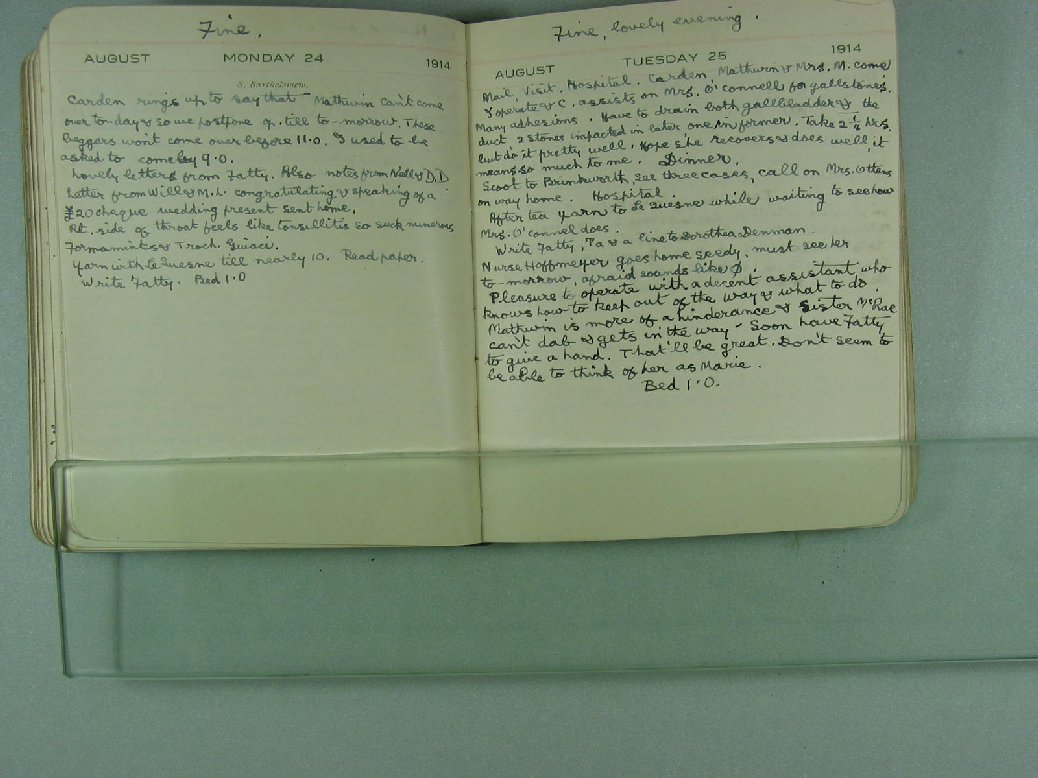 Fine.
AUGUST MONDAY 24 1914
S. Bartholomew.
Carden rings up to say that Mathwin can't come
over to-day & so we postpone op. till to-morrow. These
beggars won't come over before 11.0. I used to be
asked to come by 9.0.
Lovely letters from Fatty. Also notes from Nell & D.D
Letter from Will & M.L. congratulating & speaking of a
£20 cheque wedding present sent home.
Rt. side of throat feels like tonsellitis so suck numerous
Formamints & Troch. Guiaci.
Yarn with Le Quesne till nearly 10. Read paper.
Write Fatty. Bed 1.0
Fine, lovely evening.
AUGUST TUESDAY 25 1914
Mail, Visit, Hospital. Carden, Mathwin & Mrs. M. come
I operate & C. assists on Mrs. O'connell for gallstones.
Many adhesions. Have to drain both gallbladder & the
duct 2 stones impacted in later one in former. Take 2¼ hrs.
but do it pretty well. Hope she recovers & does well it
means so much to me. Dinner.
Scoot to Brinkworth, see three cases, call on Mrs.
on way home. Hospital.
After tea yarn to Le Quesne while waiting to see how
Mrs. O'connel does.
Write Fatty, Pa & a line to Dorothea Denman.
Nurse Hoffmeyer goes home seedy, must see her
to-morrow, afraid sounds like
Pleasure to operate with a decent assistant who
knows how to keep out of the way & what to do.
Mathwin is more of a hinderance & Sister McRae
can't dab & gets in the way - Soon have Fatty
to give a hand. That'll be great. Don't seem to
be able to think of her as Marie.
Bed 1.0.